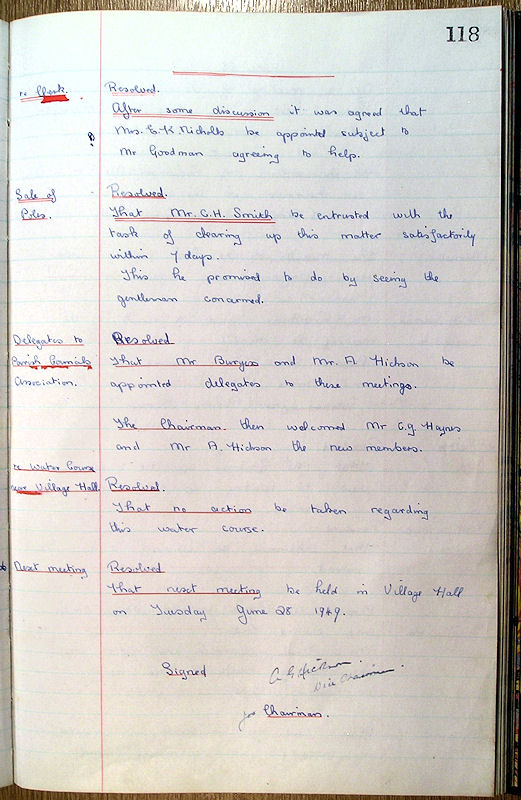 118
re Clerk. Resolved.
After some discussion it was agreed that
Mrs. E. K. Nicholls be appointed subject to
Mr Goodman agreeing to help.
Sale of Resolved.
Poles. That Mr. C.H. Smith be entrusted with the
task of clearing up this matter satisfactorily
within 7 days.
This he promised to do by seeing the
gentleman concerned.
Delegates to Resolved
Parish Councils That Mr Burgess and Mr. A. Hickson be
Association. appointed delegates to these meetings.
The Chairman. then welcomed Mr C.G. Haynes
and Mr A. Hickson the new members.
re Water Course
near Village Hall Resolved.
That no action be taken regarding
this water course.
Next meeting Resolved
That next meeting be held in Village Hall
on Tuesday June 28 1949.
Signed A G Hickson.
Vice Chairman.
for Chairman.